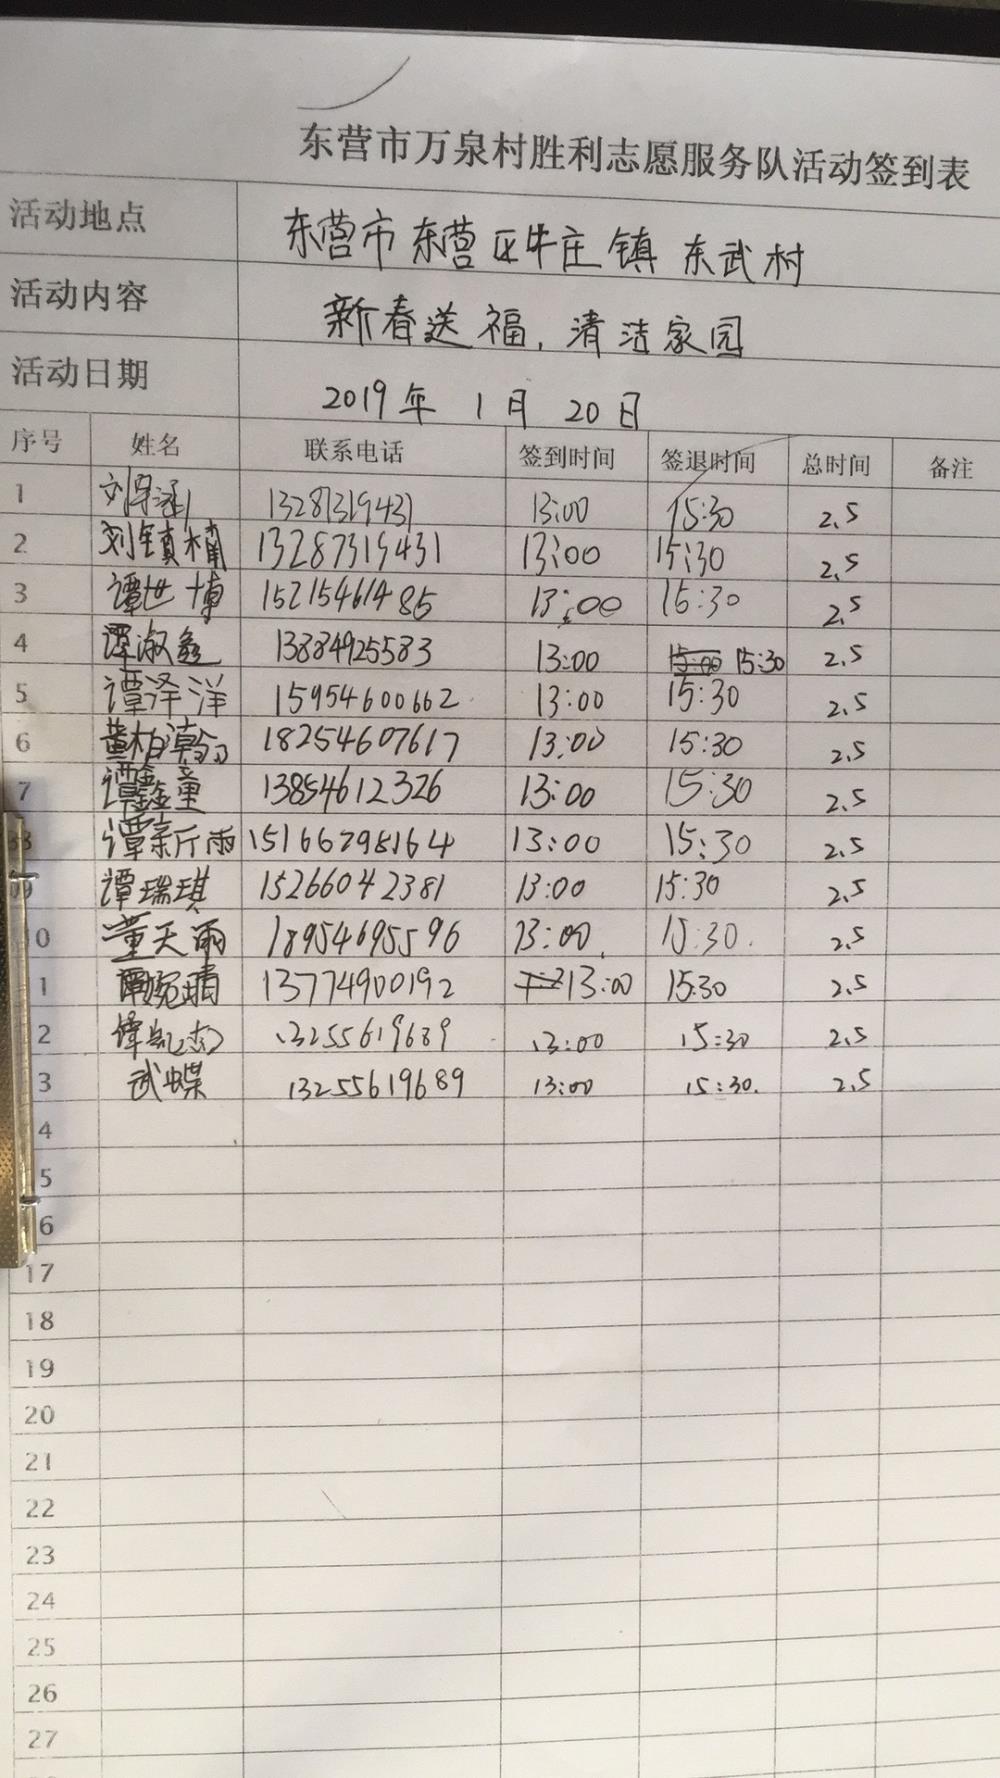 东营市万泉村胜利志愿服务队活动签到表
活动地点 东营市东营区牛庄镇 东武村
活动内容 新春送福，清洁家园
活动日期 2019年 1月 20日
序号 姓名 联系电话 签到时间 签退时间 总时间 备注
1 13287319431 13:00 15:30 2.5
2 刘镇楠 13287319431 13:00 15:30 2.5
3 谭世博 15215461485 13:00 15:30 2.5
4 谭淑鑫 13884925583 13:00 15:00 15:30 2.5
5 谭泽洋 15954600662 13:00 15:30 2.5
6 黄柏瀚 18254607617 13:00 15:30 2.5
7 谭鑫童 13854612326 13:00 15:30 2.5
8 谭新雨 15166298164 13:00 15:30 2.5
9 谭瑞琪 15266042381 13:00 15:30 2.5
0 董天雨 18954695596 13:00 15:30. 2.5
1 谭婉晴 13774900192 13:00 15:30 2.5
2 13255619689 13:00 15:30 2.5
3 武蝶 13255619689 13:00 15:30. 2.5
4
5
6
17
18
19
20
21
22
23
24
25
26
27